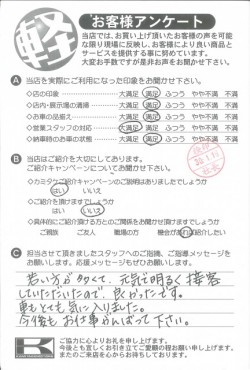 軽
お客様アンケート
当店では、お買い上げ頂いたお客様の声を可能
な限り現場に反映し、お客様により良い商品と
サービスを提供する事に努めています。
大変お手数ですが是非お声をお聞かせ下さい。
A 当店を実際にご利用になった印象をお聞かせ下さい。
◇店の印象 大満足 満足 ふつう やや不満 不満
◇店内・展示場の清掃 大満足 満足 ふつう やや不満 不満
◇お車の品揃え 大満足 満足 ふつう やや不満 不満
◇営業スタッフの対応 大満足 満足 ふつう やや不満 不満
◇納車時のお車の状態 大満足 満足 ふつう やや不満 不満
B 当店はご紹介を大切にしております。
ご紹介キャンペーンについてお聞かせ下さい。
◇カミタケご紹介キャンペーンのご説明はありましたでしょうか
はい いいえ
◇ご紹介を頂けますでしょうか
はい いいえ
◇具体的にご紹介頂ける方とのご関係をお聞かせ頂けますでしょうか
ご親族 ご友人 職場の方 機会があれば紹介したい
C 担当させて頂きましたスタッフへのご指摘、ご指導メッセージを
お願いします。応援メッセージもぜひお願いします。
若い方が多くて、元気で明るく接客
していただいたので、良かったです。
車もとても気に入りました。
今後もお仕事がんばって下さい。
K
ご協力に心よりお礼を申し上げます。
今後とも宜しくお引き立てご愛顧の程お願い申し上げます。
またのご来店を心からお待ちしております。